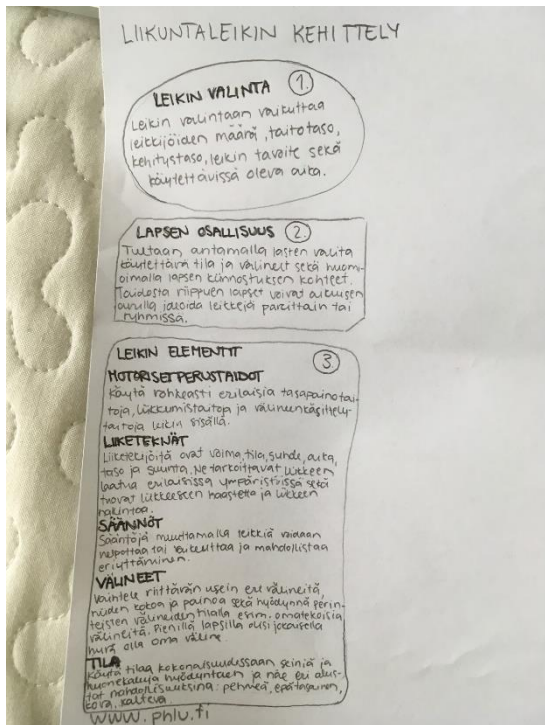 LIIKUNTALEIKIN KEHITTELY
LEIKIN VALINTA 1.
Leikin valintaan vaikuttaa
leikkijöiden määrä, taitotaso,
kehitystaso, leikin tavoite sekä
käytettävissä oleva aika.
LAPSEN OSALLISUUS 2.
Tuetaan antamalla lasten valita
käytettävä tila ja välineet sekä huomi-
oimalla lapsen kiinnostuksen kohteet.
Taidosta riippuen lapset voivat aikuisen
avulla ideoida leikkejä pareittain tai
ryhmissä.
LEIKIN ELEMENTIT 3.
MOTORISET PERUSTAIDOT
Käytä rohkeasti erilaisia tasapainotai-
toja, liikkumistaitoja ja välineenkäsittely-
taitoja leikin sisällä.
LIIKETEKIJÄT
Liiketekijöitä ovat voima, tila, suhde, aika,
taso ja suunta. Ne tarkoittavat liikkeen
laatua erilaisissa ympäristöissä sekä
tuovat liikkeeseen haastetta ja liikkeen
hakintaa.
SÄÄNNÖT
Sääntöjä muuttamalla leikkiä voidaan
helpottaa tai vaikeuttaa ja mahdollistaa
eriyttäminen.
VÄLINEET
Vaihtele riittävän usein eri välineitä,
niiden kokoa ja painoa sekä hyödynnä perin-
teisten välineiden tilalla esim. omatekoisia
välineitä. Pienillä lapsilla olisi jokaisella
hyvä olla oma väline.
TILA
Käytä tilaa kokonaisuudessaan seiniä ja
huonekaluja hyödyntäen ja näe eri alus-
tat mahdollisuuksina: pehmeä, epätasainen,
kova, kalteva
www.phlu.fi